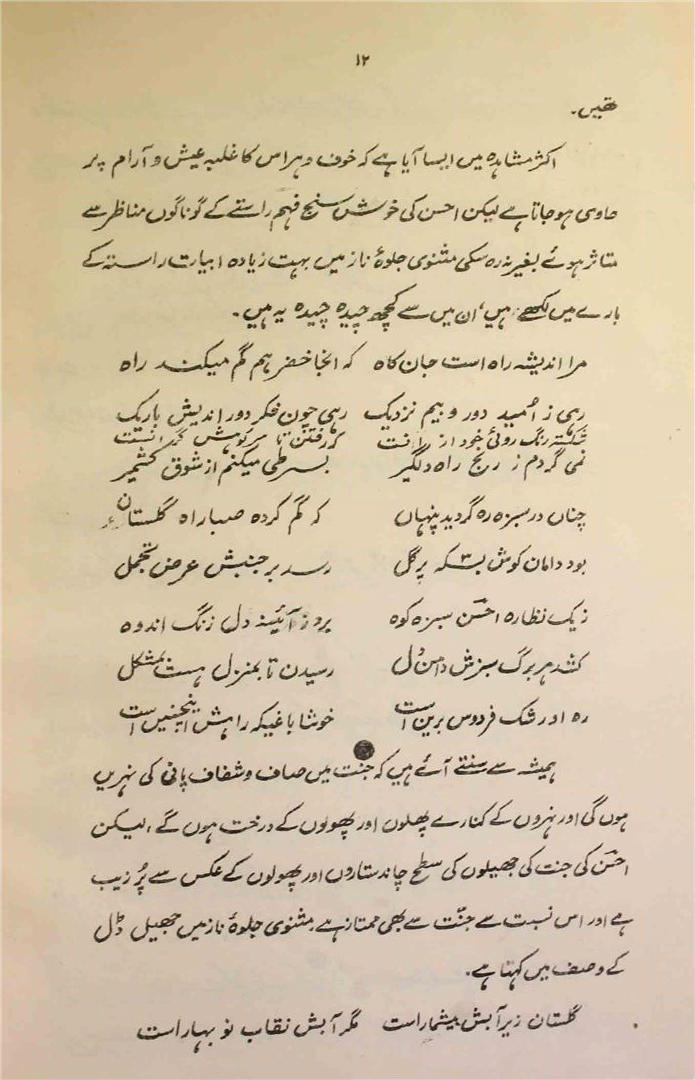 ۱۲
تھیں۔
اکثر مشاہدہ میں ایسا آیا ہے کہ خوف و ہراس کا غلبہ عیش و آرام پر
حاوی ہو جاتا ہے لیکن احسن کی خوش سنج فہم راستے کے گوناگوں مناظر سے
متاثر ہوئے بغیر نہ رہ سکی مثنوی جلوۂ ناز میں بہت زیادہ ابیات راستہ کے
بارے میں لکھے ہیں، ان میں سے کچھ چیدہ چیدہ یہ ہیں۔
مرا اندیشہ راہ است جان کاہ کہ انجا خضر ہم گم میکند راہ
رہی ز اُمید دور و بیم نزدیک رہی چون فکر دور اندیش باریک
شکستہ رنگ روئی خود از
نمی گردم ز رنج راہ دلگیر بسر طی میکنم از شوق کشمیر
چناں در سبزہ رہ گردید پنہاں کہ گم کردہ صبا راہ گلستان
بود دامان کوش بسکہ پر گل رسد بر جنبش عرض تجمل
زیک نظارہ احسن سبزہ کوہ برو ز آئینہ دل زنگ اندوہ
کشد ہر برگ سبزش دامن دل رسیدن تا بمنزل ہست مشکل
رہ او رشک فردوس برین است خوشا باغیکہ راہش اینچنیں است
ہمیشہ سے سنتے آئے ہیں کہ جنت میں صاف و شفاف پانی کی نہریں
ہوں گی اور نہروں کے کنارے پھلوں اور پھولوں کے درخت ہوں گے، لیکن
احسن کی جنت کی جھیلوں کی سطح چاند ستاروں اور پھولوں کے عکس سے پُر زیب
ہے اور اس نسبت سے جنّت سے بھی ممتاز ہے مثنوی جلوۂ ناز میں جھیل ڈل
کے وصف میں کہتا ہے۔
گلستان زیر آبش بیشمار است مگر آبش نقاب نو بہار است